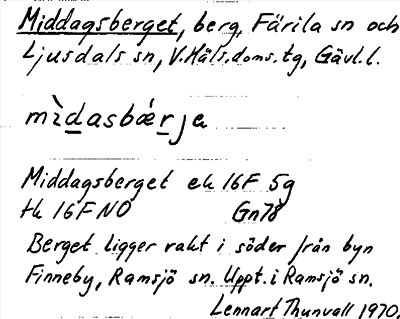 Middagsberget, berg, Färila sn och
Ljusdals sn, V. Häls. doms. tg, Gävl. l.
mìdasbǽrja
Middagsberget ek 16F 5g
tk 16F NO Gn78
Berget ligger rakt i söder från byn
Finneby, Ramsjö sn. Uppt. i Ramsjö sn.
Lennart Thunvall 1970.